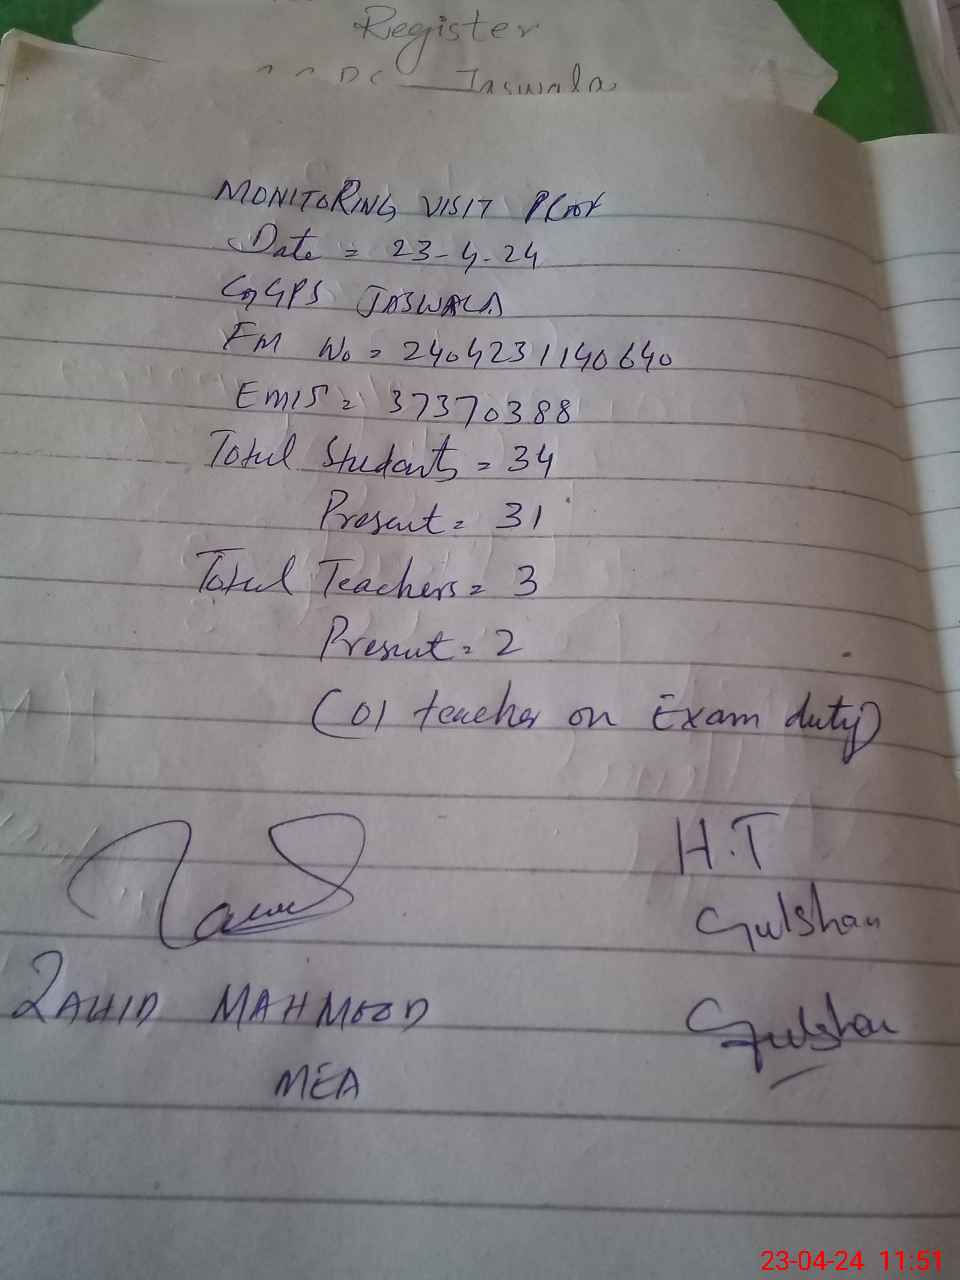 Register
Jaswala
MONITORING VISIT
Date = 23-4-24
GGPS JASWALA
FM No = 2404231140640
EMIS = 37370388
Total Students = 34
Present = 31
Total Teachers = 3
Present = 2
(01 teacher on Exam duty)
H.T
Gulshan
ZAHID MAHMOOD
Gulshan
MEA
23-04-24 11:51